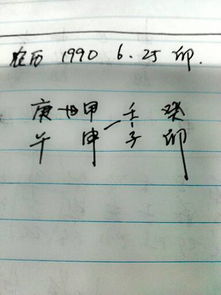 农历 1990 6.25 卯.
庚 甲 壬 癸
午 申 子 卯